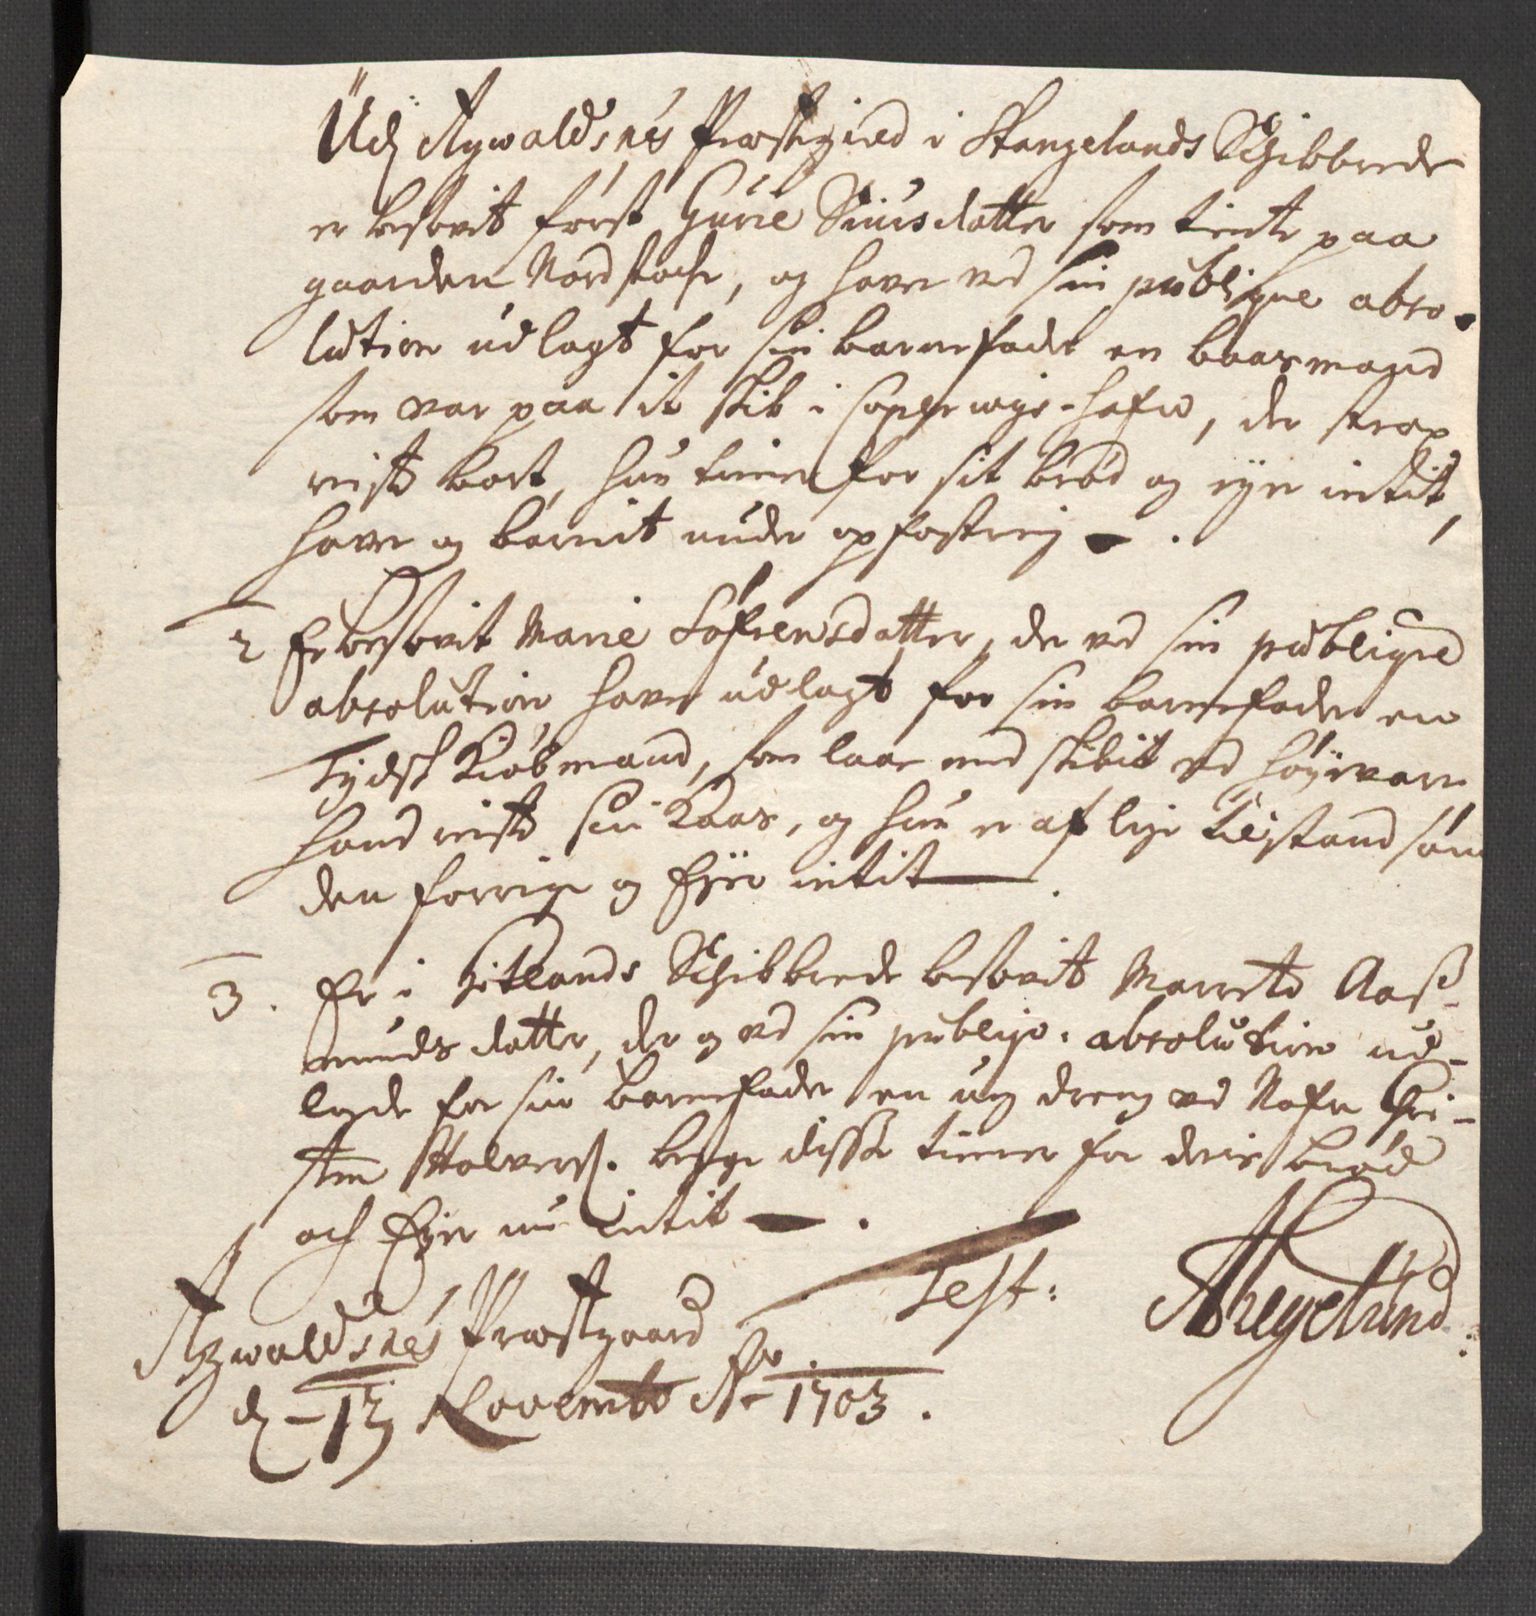 Udj Agwaldsnes Præstegield i Stangelands Schibbrede
er besovit først Gurie Siursdatter som tiente paa
gaarden Nordstoche, og haver ved sin publique abso-
lution udlagt for sin barnefader en baasmand
som var paa it skib i Copervigs hafn, der strax
reiste bort, hun tiener for sit brød og eyer intit,
haver og barnit under opfostring.
2 Er besovit Marie Søfrensdatter, der ved sin publique
absolution haver udlagt for sin barnefader en
Tydsk Kiøbmand, som laae med skibit ved Høyevare
hand reiste sin Kaas, og hun er af lige tilstand som
den forrige og Eyer intit.
3. Er i Hetlands Schibbrede besovit Marrete Aaß-
mundsdatter, der og ved sin publiqve absolution ud-
lagde for sin Barnefader en ung dreng ved Nafn Chri-
sten Halvors. begge disse tiener for deris brød
och Eyer nu intit.
Agwaldsnes Præstgaard Test:
d. 12 Novembr Ao 1703.